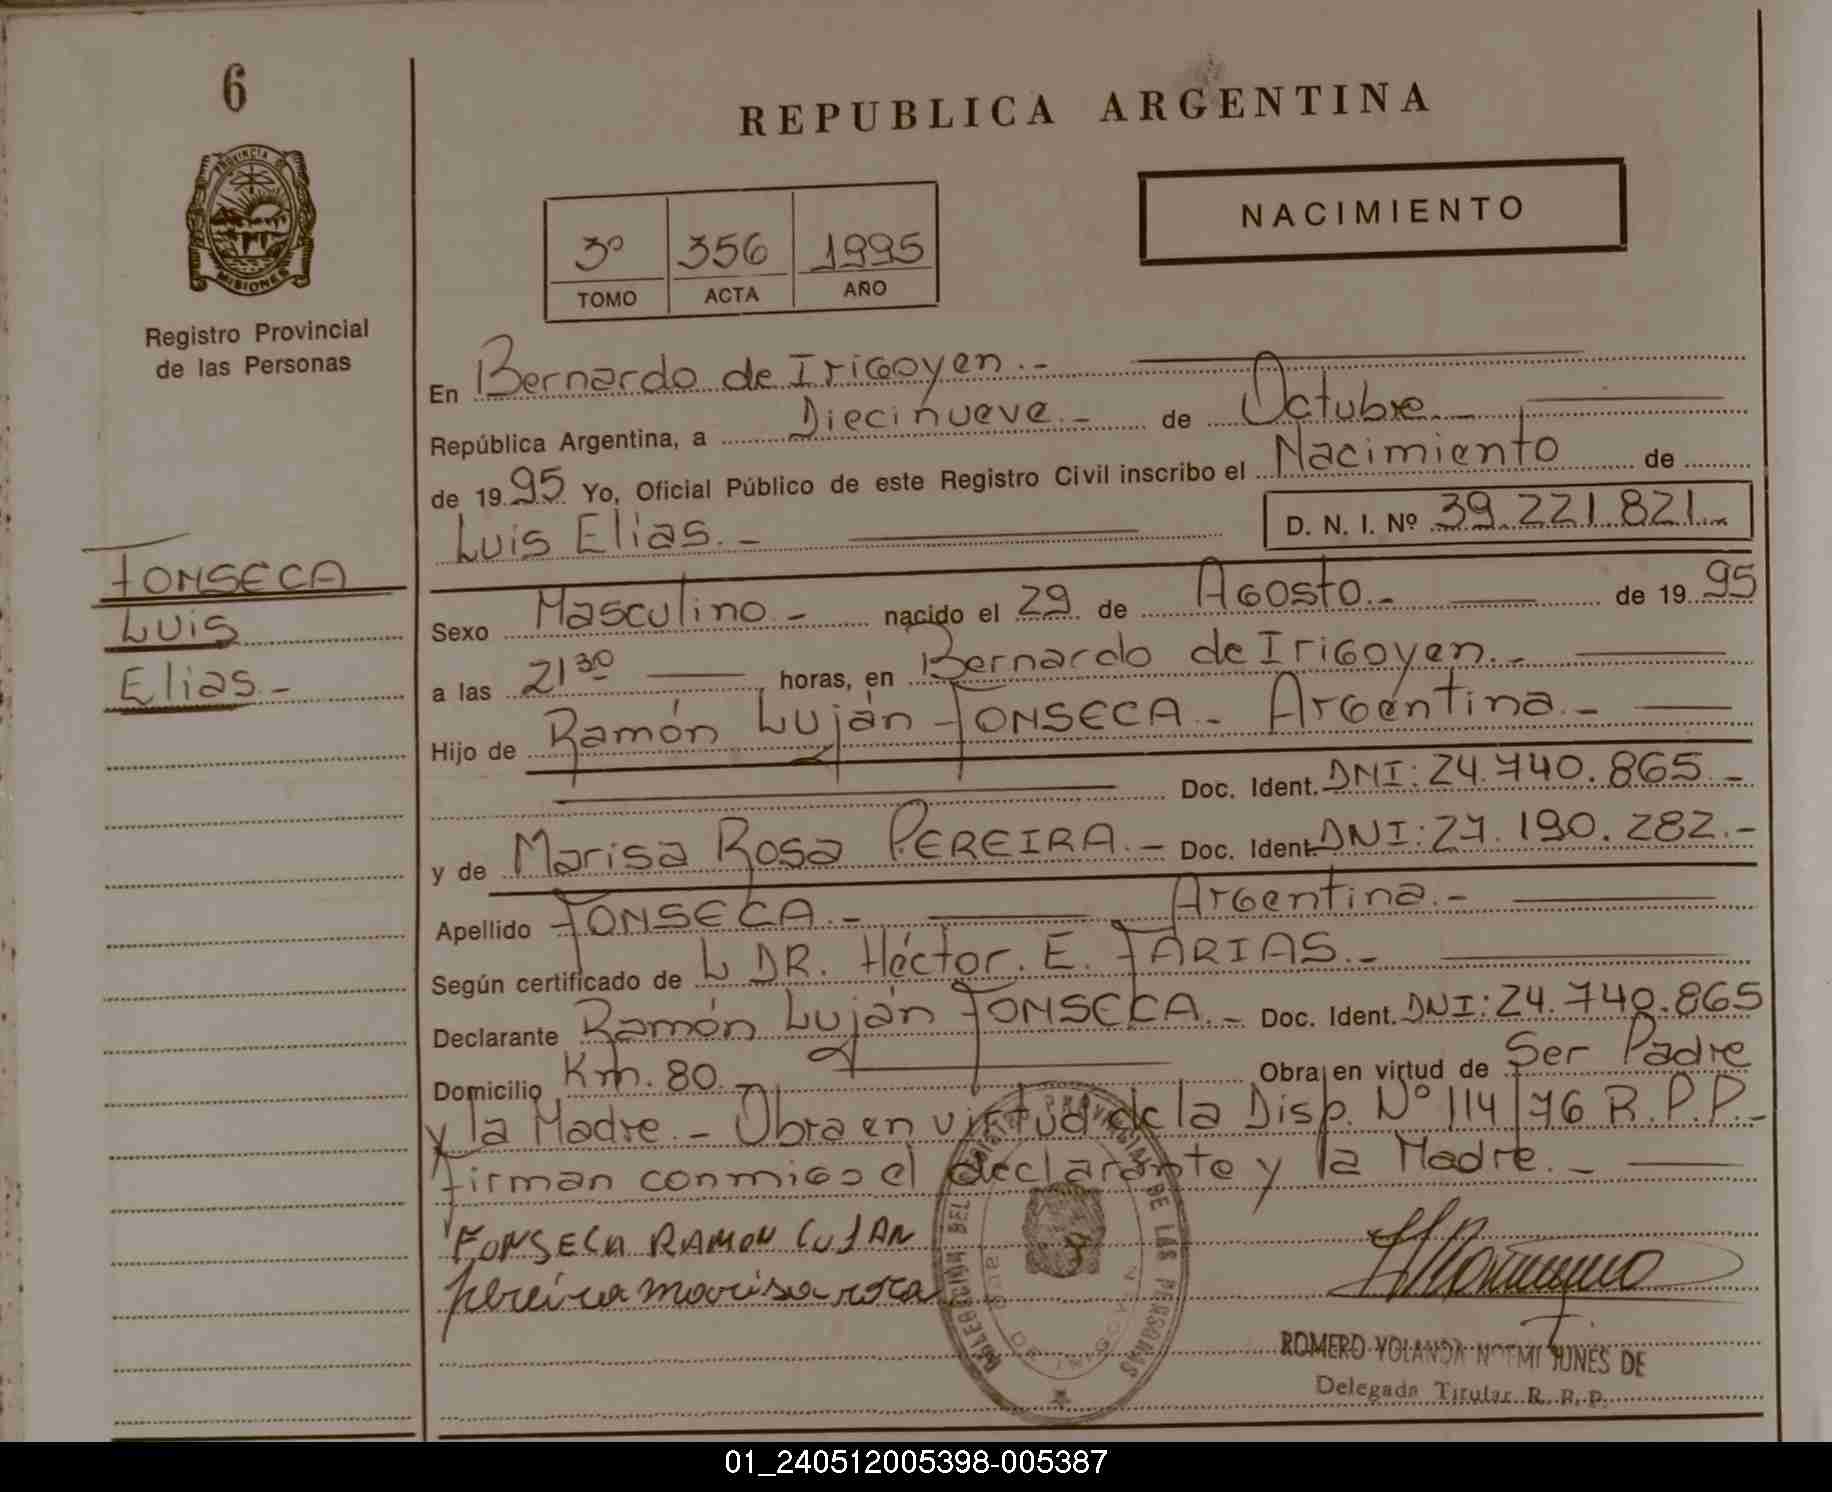 6
PROVINCIA DE
MISIONES
Registro Provincial
de las Personas
FONSECA
Luis
Elias.-
REPUBLICA ARGENTINA
3º 356 1995
TOMO ACTA AÑO
NACIMIENTO
En Bernardo de Irigoyen.-
República Argentina, a Diecinueve.- de Octubre.-
de 1995 Yo, Oficial Público de este Registro Civil inscribo el Nacimiento de
Luis Elias.- D. N. I. Nº 39.221.821.-
Sexo Masculino.- nacido el 29 de Agosto.- de 1995
a las 21 30 horas, en Bernardo de Irigoyen.-
Hijo de Ramón Luján FONSECA.- Argentina.-
Doc. Ident. DNI: 24.740.865.-
y de Marisa Rosa PEREIRA.- Doc. Ident. DNI: 27.190.282.-
Apellido FONSECA.- Argentina.-
Según certificado de L DR. Héctor. E. FARIAS.-
Declarante Ramón Luján FONSECA.- Doc. Ident. DNI: 24.740.865
Domicilio Km. 80.- Obra en virtud de Ser Padre
y la Madre.- Obra en virtud de la Disp. Nº 114/76 R.P.P.-
Firman conmigo el declarante y la Madre.-
FONSECA RAMON LUJAN
pereira marisa rosa
DELEGACIÓN DEL REGISTRO PROVINCIAL DE LAS PERSONAS
ROMERO YOLANDA NOEMI FUNES DE
Delegada Titular R. P. P.
01_240512005398-005387